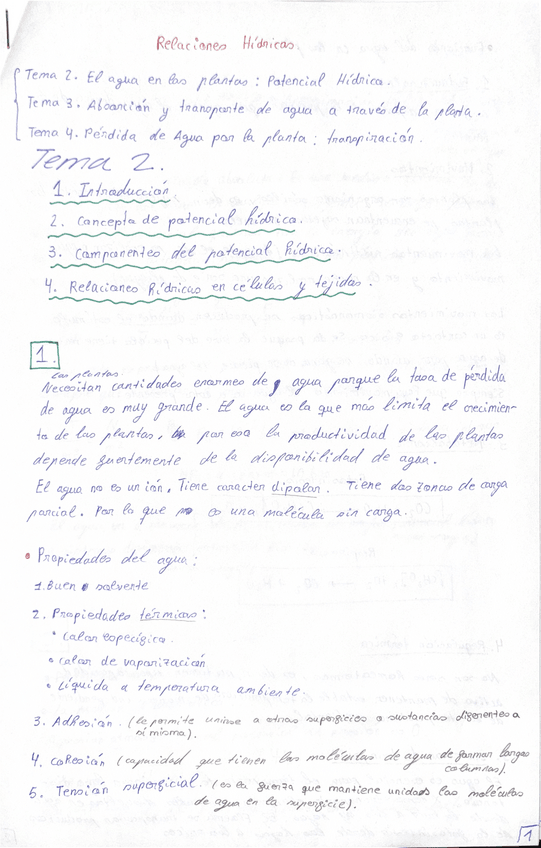 Relaciones Hídricas
Tema 2. El agua en las plantas: Potencial Hídrico.
Tema 3. Absorción y transporte de agua a través de la planta.
Tema 4. Pérdida de Agua por la planta: transpiración.
Tema 2.
1. Introducción
2. Concepto de potencial hídrico.
3. Componentes del potencial hídrico.
4. Relaciones hídricas en células y tejidos.
1.
Las plantas
Necesitan cantidades enormes de agua porque la tasa de pérdida
de agua es muy grande. El agua es la que más limita el crecimien-
to de las plantas, por eso la productividad de las plantas
depende fuertemente de la disponibilidad de agua.
El agua no es un ión, Tiene caracter dipolar. Tiene dos zonas de carga
parcial. Por lo que es una molécula sin carga.
• Propiedades del agua:
1. Buen solvente
2. Propiedades térmicas:
• Calor específico.
• calor de vaporización
• Líquida a temperatura ambiente.
3. Adhesión. (le permite unirse a otras superficies o sustancias diferentes a
sí misma).
4. Cohesión (capacidad que tienen las moléculas de agua de formar largas
columnas).
5. Tensión superficial. (es la fuerza que mantiene unidas las moléculas
de agua en la superficie).
1